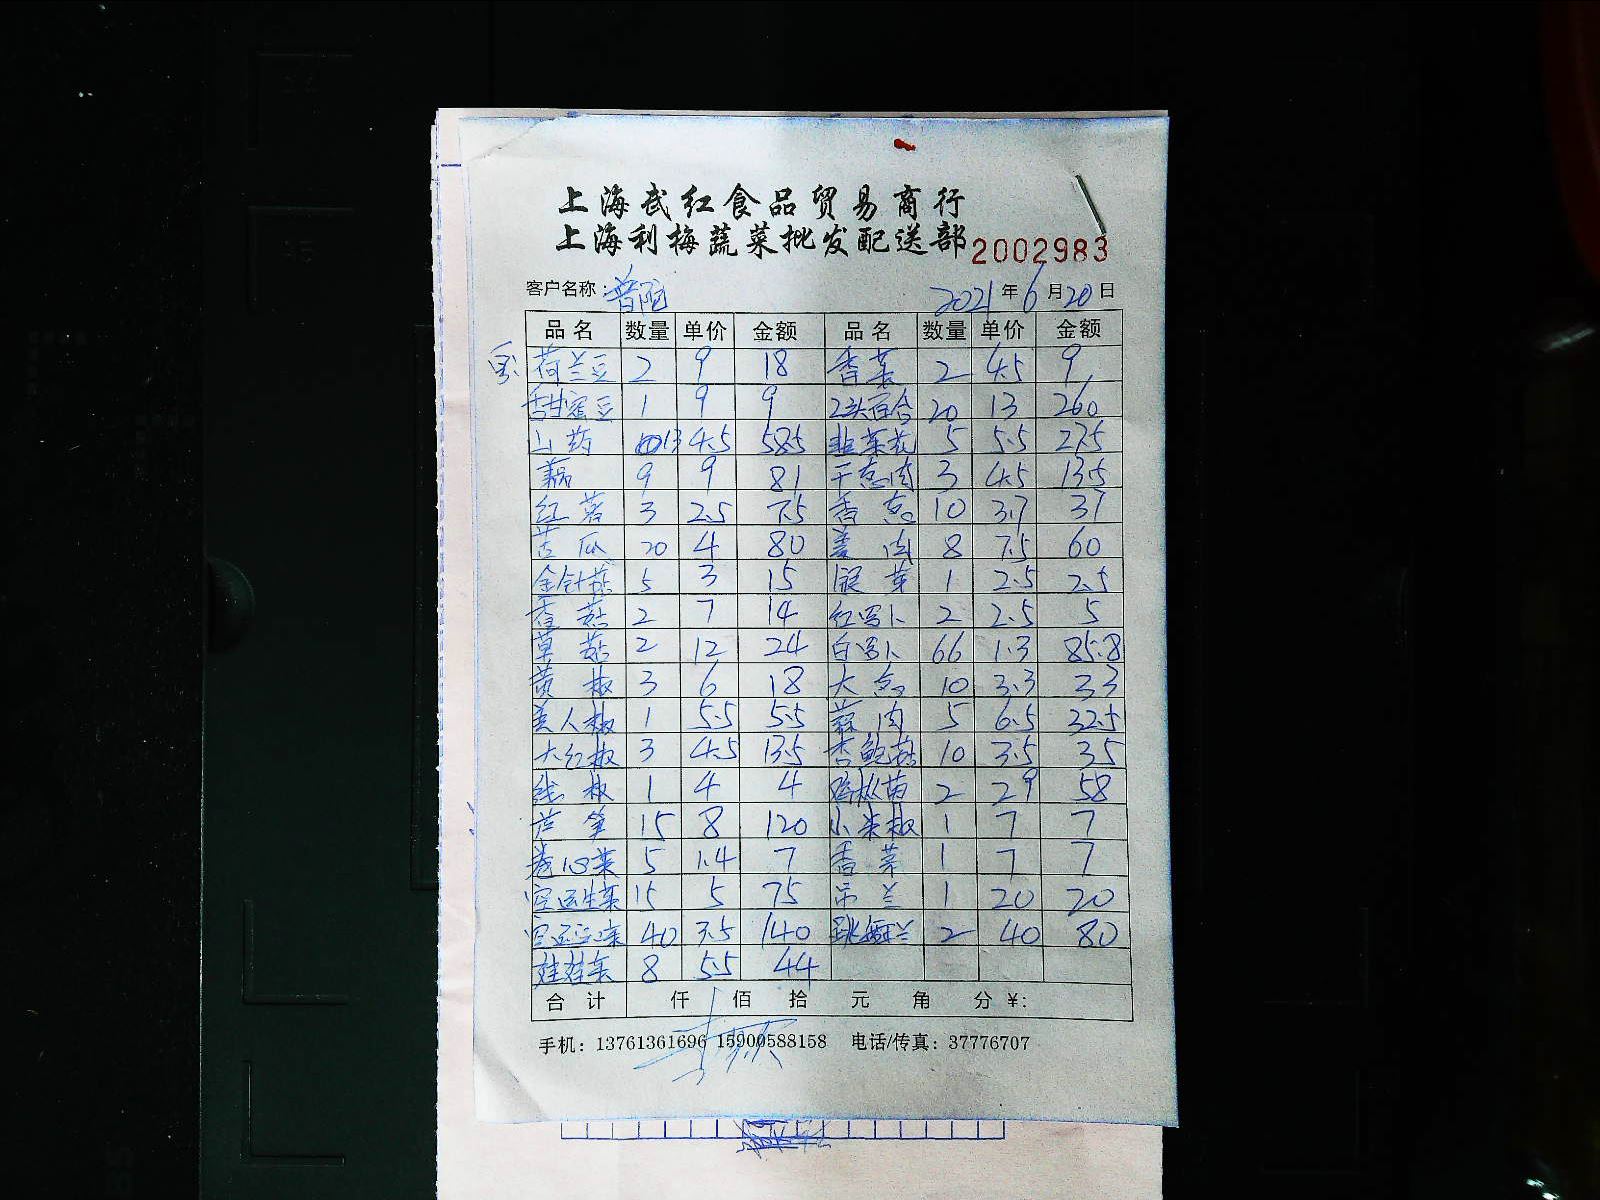 上海武红食品贸易商行
上海利梅蔬菜批发配送部 2002983
客户名称：普陀 2021年6月20日
品名 数量 单价 金额 品名 数量 单价 金额
荷兰豆 2 9 18 香菜 2 4.5 9
甜蜜豆 1 9 9 2头百合 20 13 260
山药 13 4.5 58.5 韭菜花 5 5.5 27.5
藕 9 9 81 干葱肉 3 4.5 13.5
红薯 3 2.5 7.5 香葱 10 3.7 37
苦瓜 20 4 80 姜肉 8 7.5 60
金针菇 5 3 15 芽 1 2.5 2.5
香菇 2 7 14 红罗卜 2 2.5 5
草菇 2 12 24 白罗卜 66 1.3 85.8
黄椒 3 6 18 大葱 10 3.3 33
美人椒 1 5.5 5.5 蒜肉 5 6.5 32.5
大红椒 3 4.5 13.5 杏鲍菇 10 3.5 35
线椒 1 4 4 鸡枞菌 2 29 58
芦笋 15 8 120 小米椒 1 7 7
卷心菜 5 1.4 7 香茅 1 7 7
空运生菜 15 5 75 吊兰 1 20 20
空运 40 3.5 140 跳舞兰 2 40 80
娃娃菜 8 5.5 44
合计 仟 佰 拾 元 角 分 ¥:
手机：13761361696 15900588158 电话/传真：37776707